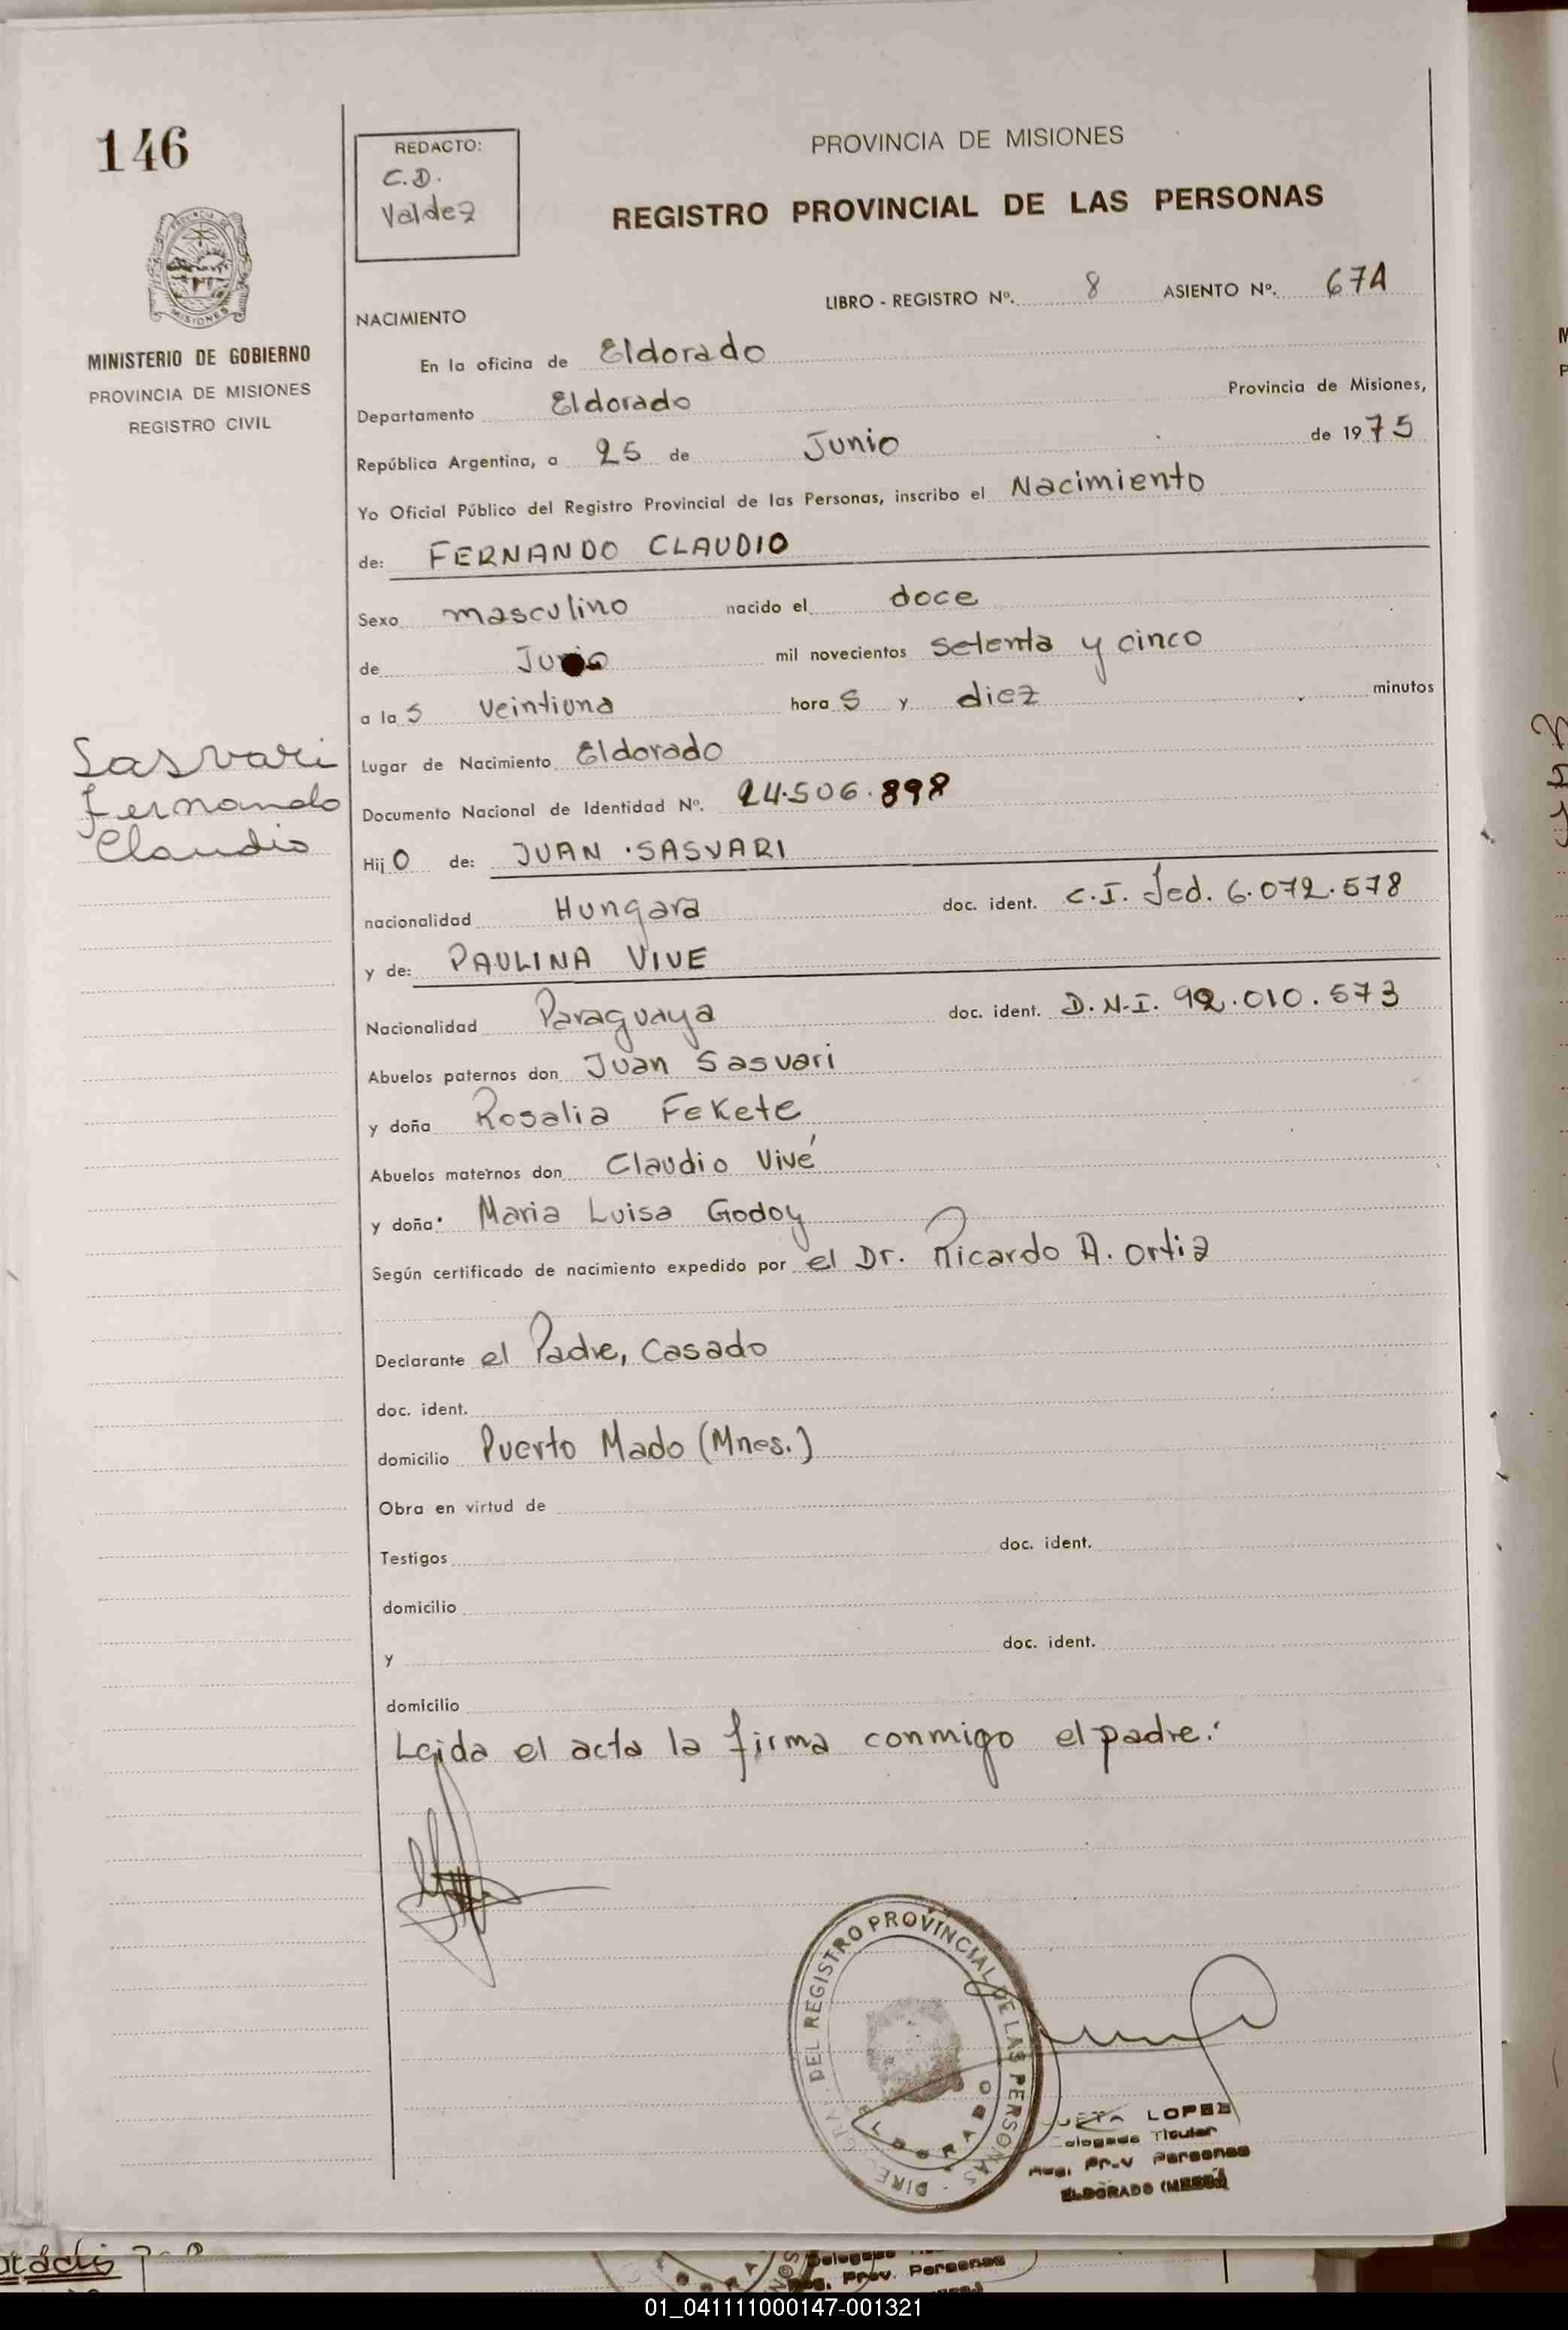 146
REDACTO:
C.D.
Valdez
PROVINCIA DE MISIONES
REGISTRO PROVINCIAL DE LAS PERSONAS
MINISTERIO DE GOBIERNO
PROVINCIA DE MISIONES
REGISTRO CIVIL
LIBRO - REGISTRO Nº. 8 ASIENTO Nº. 674
NACIMIENTO
En la oficina de Eldorado
Departamento Eldorado Provincia de Misiones,
República Argentina, a 25 de Junio de 1975
Yo Oficial Público del Registro Provincial de las Personas, inscribo el Nacimiento
de: FERNANDO CLAUDIO
Sexo masculino nacido el doce
de Junio mil novecientos setenta y cinco
a la s veintiuna hora s y diez minutos
Lugar de Nacimiento Eldorado
Documento Nacional de Identidad Nº. 24.506.898
Sasvari
Fernando
Claudio
Hij o de: JUAN SASVARI
nacionalidad Hungara doc. ident. C.I. Fed. 6.072.578
y de: PAULINA VIVE
Nacionalidad Paraguaya doc. ident. D.N.I. 92.010.573
Abuelos paternos don Juan Sasvari
y doña Rosalia Fekete
Abuelos maternos don Claudio Vivé
y doña Maria Luisa Godoy
Según certificado de nacimiento expedido por el Dr. Ricardo A. Ortiz
Declarante el Padre, Casado
doc. ident.
domicilio Puerto Mado (Mnes.)
Obra en virtud de
Testigos doc. ident.
domicilio
y doc. ident.
domicilio
Leida el acta la firma conmigo el padre.
DEL REGISTRO PROVINCIAL DE LAS PERSONAS
ELDORADO
LOPEZ
Titular
Personas
ELDORADO
Delegado
Reg. Prov. Personas
01_041111000147-001321